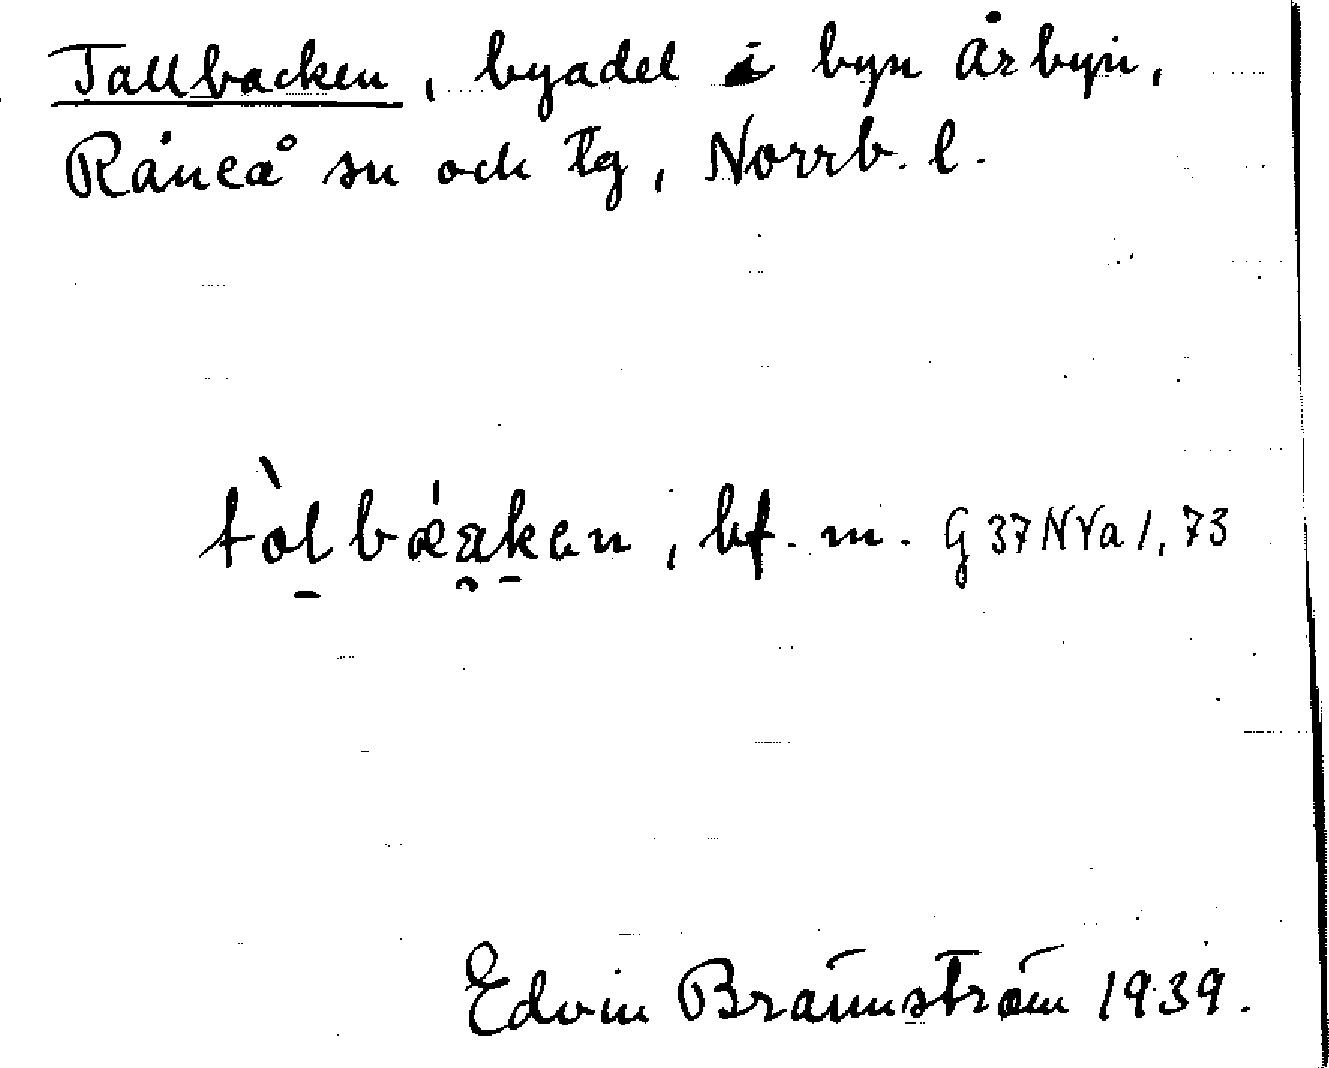 Tallbacken, byadel i byn Årbyn,
Råneå sn och tg, Norrb. l.
tòl̠bǽa̯k̠en, bf. m. G 37 NYa 1, 73
Edvin Brännström 1939.